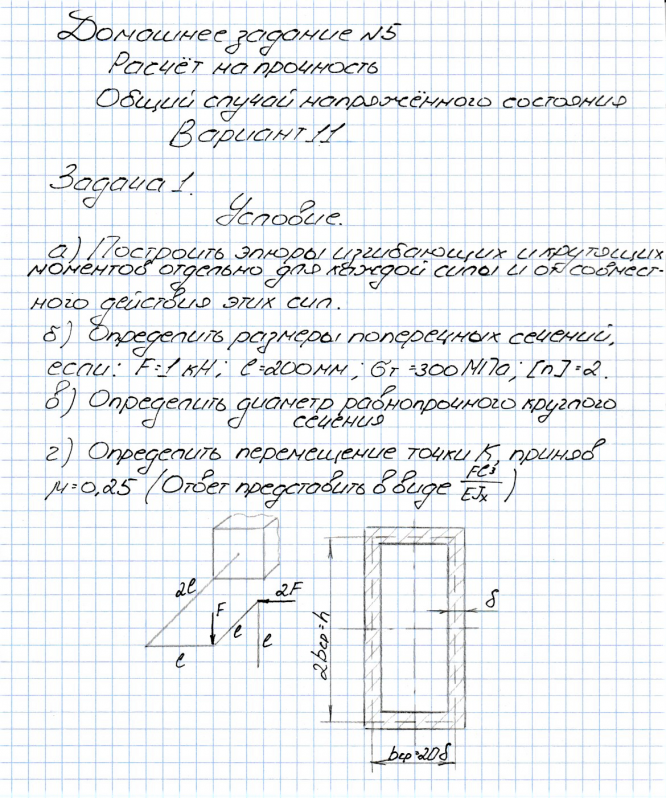 Домашнее задание №5
Расчёт на прочность
Общий случай напряжённого состояния
Вариант 11
Задача 1.
Условие.
а) Построить эпюры изгибающих и крутящих
моментов отдельно для каждой силы и от совмест-
ного действия этих сил.
б) Определить размеры поперечных сечений,
если: F=1 кН; l=200мм; σт=300МПа; [n]=2.
в) Определить диаметр равнопрочного круглого
сечения
г) Определить перемещение точки К, приняв
μ=0,25 (Ответ представить в виде Fl³/EJx)
2l
F
2F
l
l
l
2bср=h
δ
bср=20δ